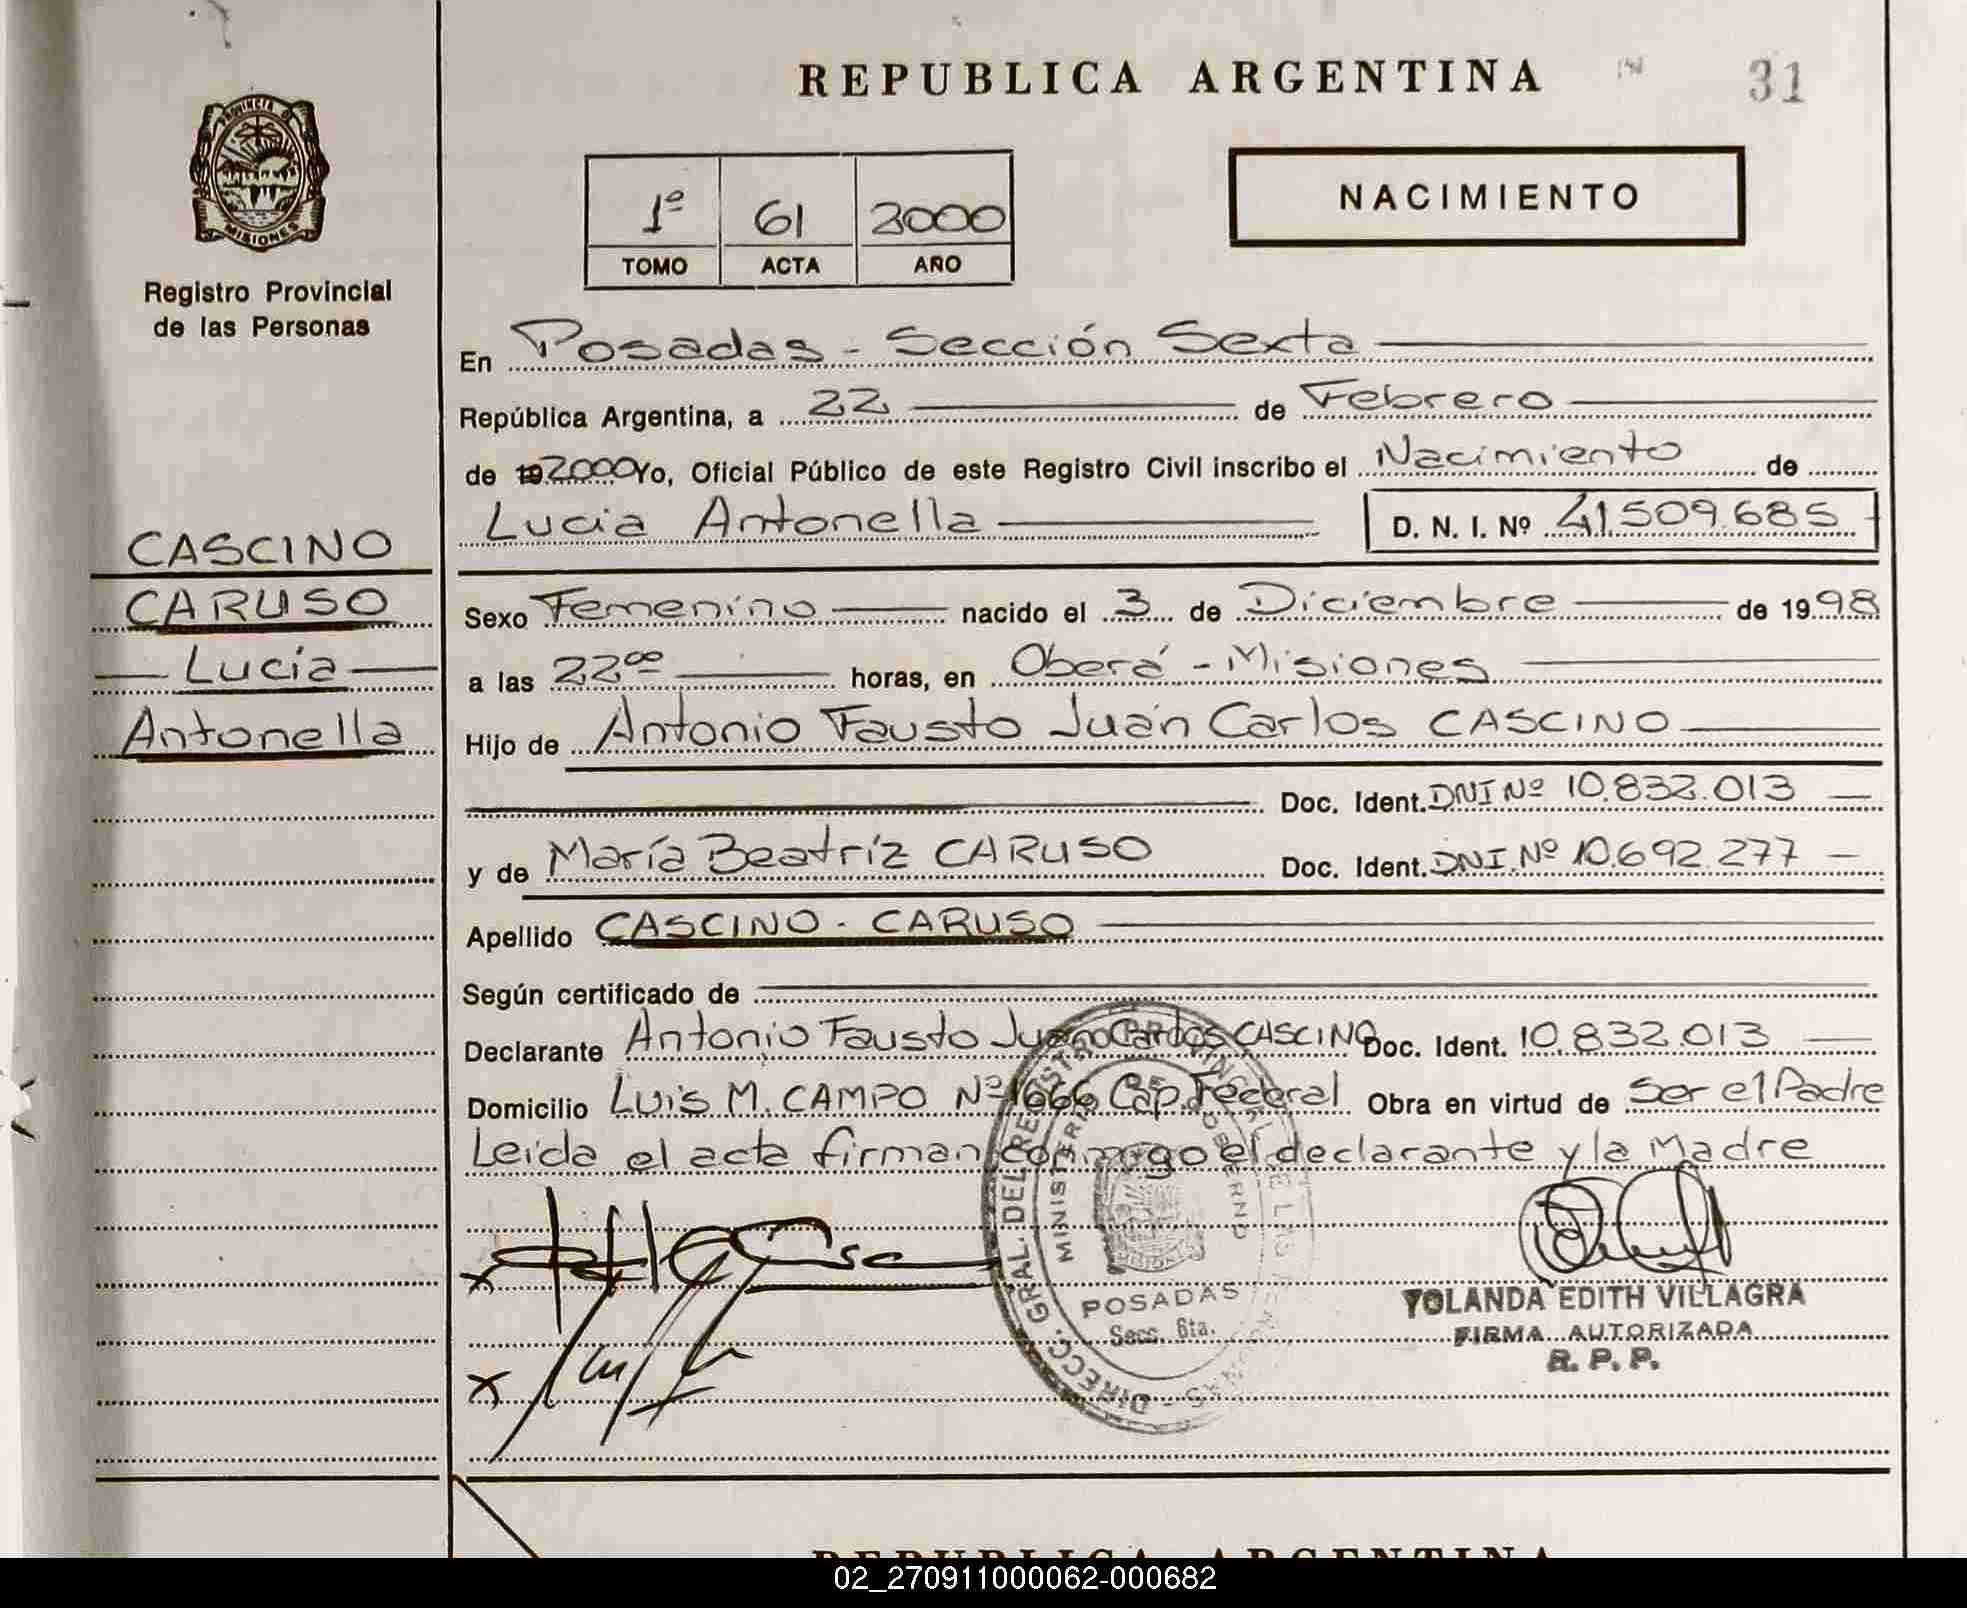 REPUBLICA ARGENTINA
31
PROVINCIA DE
MISIONES
Registro Provincial
de las Personas
1º 61 2000
TOMO ACTA AÑO
NACIMIENTO
CASCINO
CARUSO
Lucía
Antonella
En Posadas - Sección Sexta
República Argentina, a 22 de Febrero
de 19 2000 Yo, Oficial Público de este Registro Civil inscribo el Nacimiento de
Lucia Antonella D. N. I. Nº 41.509.685
Sexo Femenino nacido el 3 de Diciembre de 1998
a las 22ºº horas, en Oberá - Misiones
Hijo de Antonio Fausto Juan Carlos CASCINO
Doc. Ident. DNI Nº 10.832.013
y de María Beatríz CARUSO Doc. Ident. DNI. Nº 10.692.277
Apellido CASCINO - CARUSO
Según certificado de
Declarante Antonio Fausto Juan Carlos CASCINO Doc. Ident. 10.832.013
Domicilio Luis M. CAMPO Nº 1666 Cap. Federal Obra en virtud de Ser el Padre
Leida el acta firman conmigo el declarante y la Madre
DIRECC. GRAL. DEL REGISTRO PROVINCIAL DE LAS PERSONAS
MINISTERIO DE GOBIERNO
MISIONES
POSADAS
Secc. 6ta.
YOLANDA EDITH VILLAGRA
FIRMA AUTORIZADA
R. P. P.
REPUBLICA ARGENTINA
02_270911000062-000682